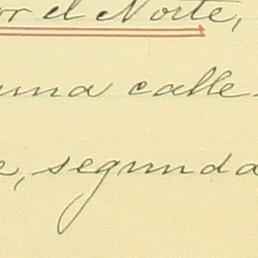 or el Norte,
una calle
e, segunda